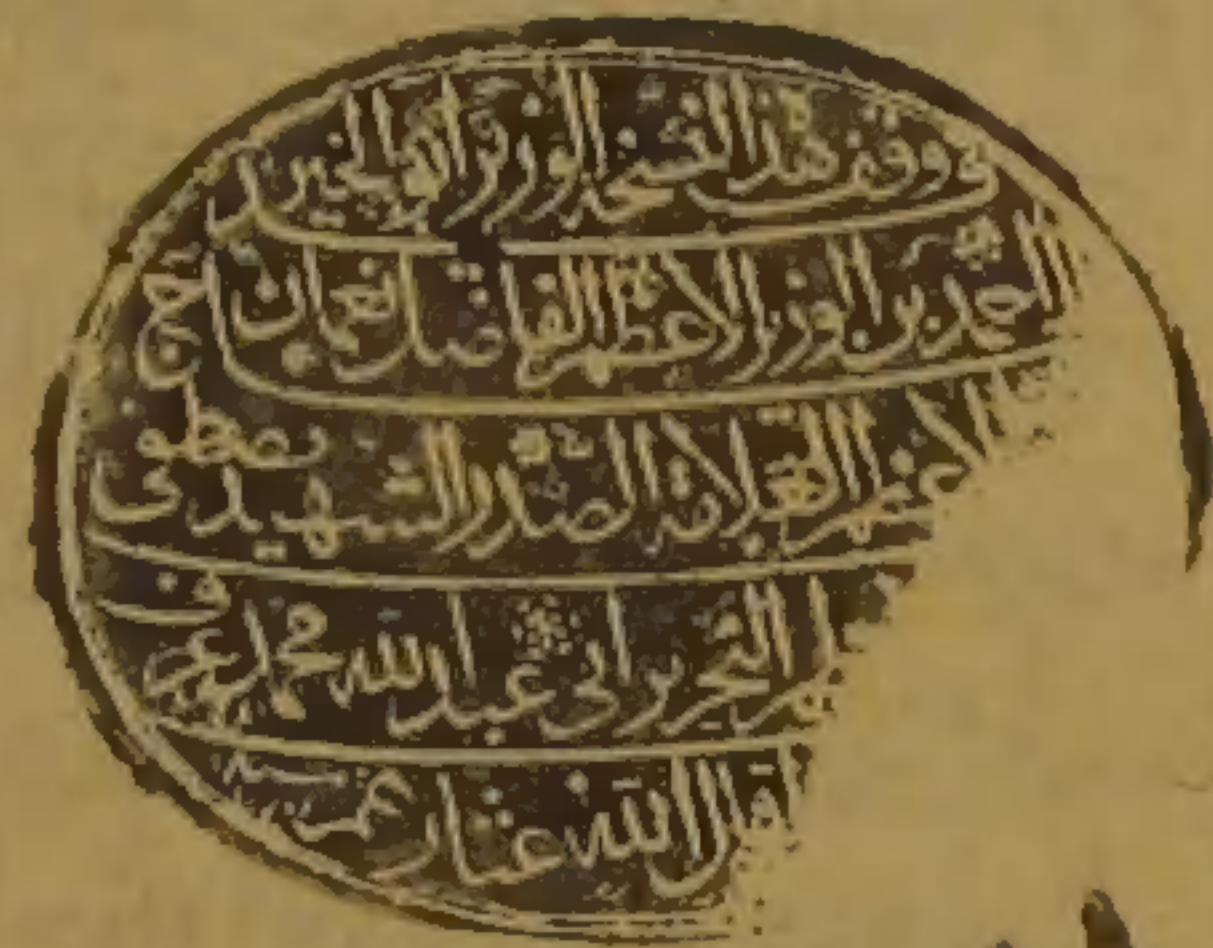 في وقف هذا النسخة الوزير ابو الخير
احمد بن الوزير الاعظم الفاضل نعمان
الاعظم العلامة الصدر الشهيد مصطفى
التحرير ابي عبد الله محمد
اقال الله عثار